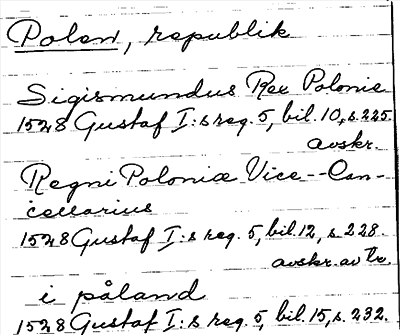 Polen, republik
Sigismundus Rex Polonie
1528 Gustaf I:s reg. 5, bil. 10, s. 225.
avskr.
Regni Poloniæ Vice--Can-
cellarius
1528 Gustaf I:s reg. 5, bil. 12, s. 228.
avskr. av Tr.
i påland
1528 Gustaf I:s reg. 5, bil. 15, s. 232.